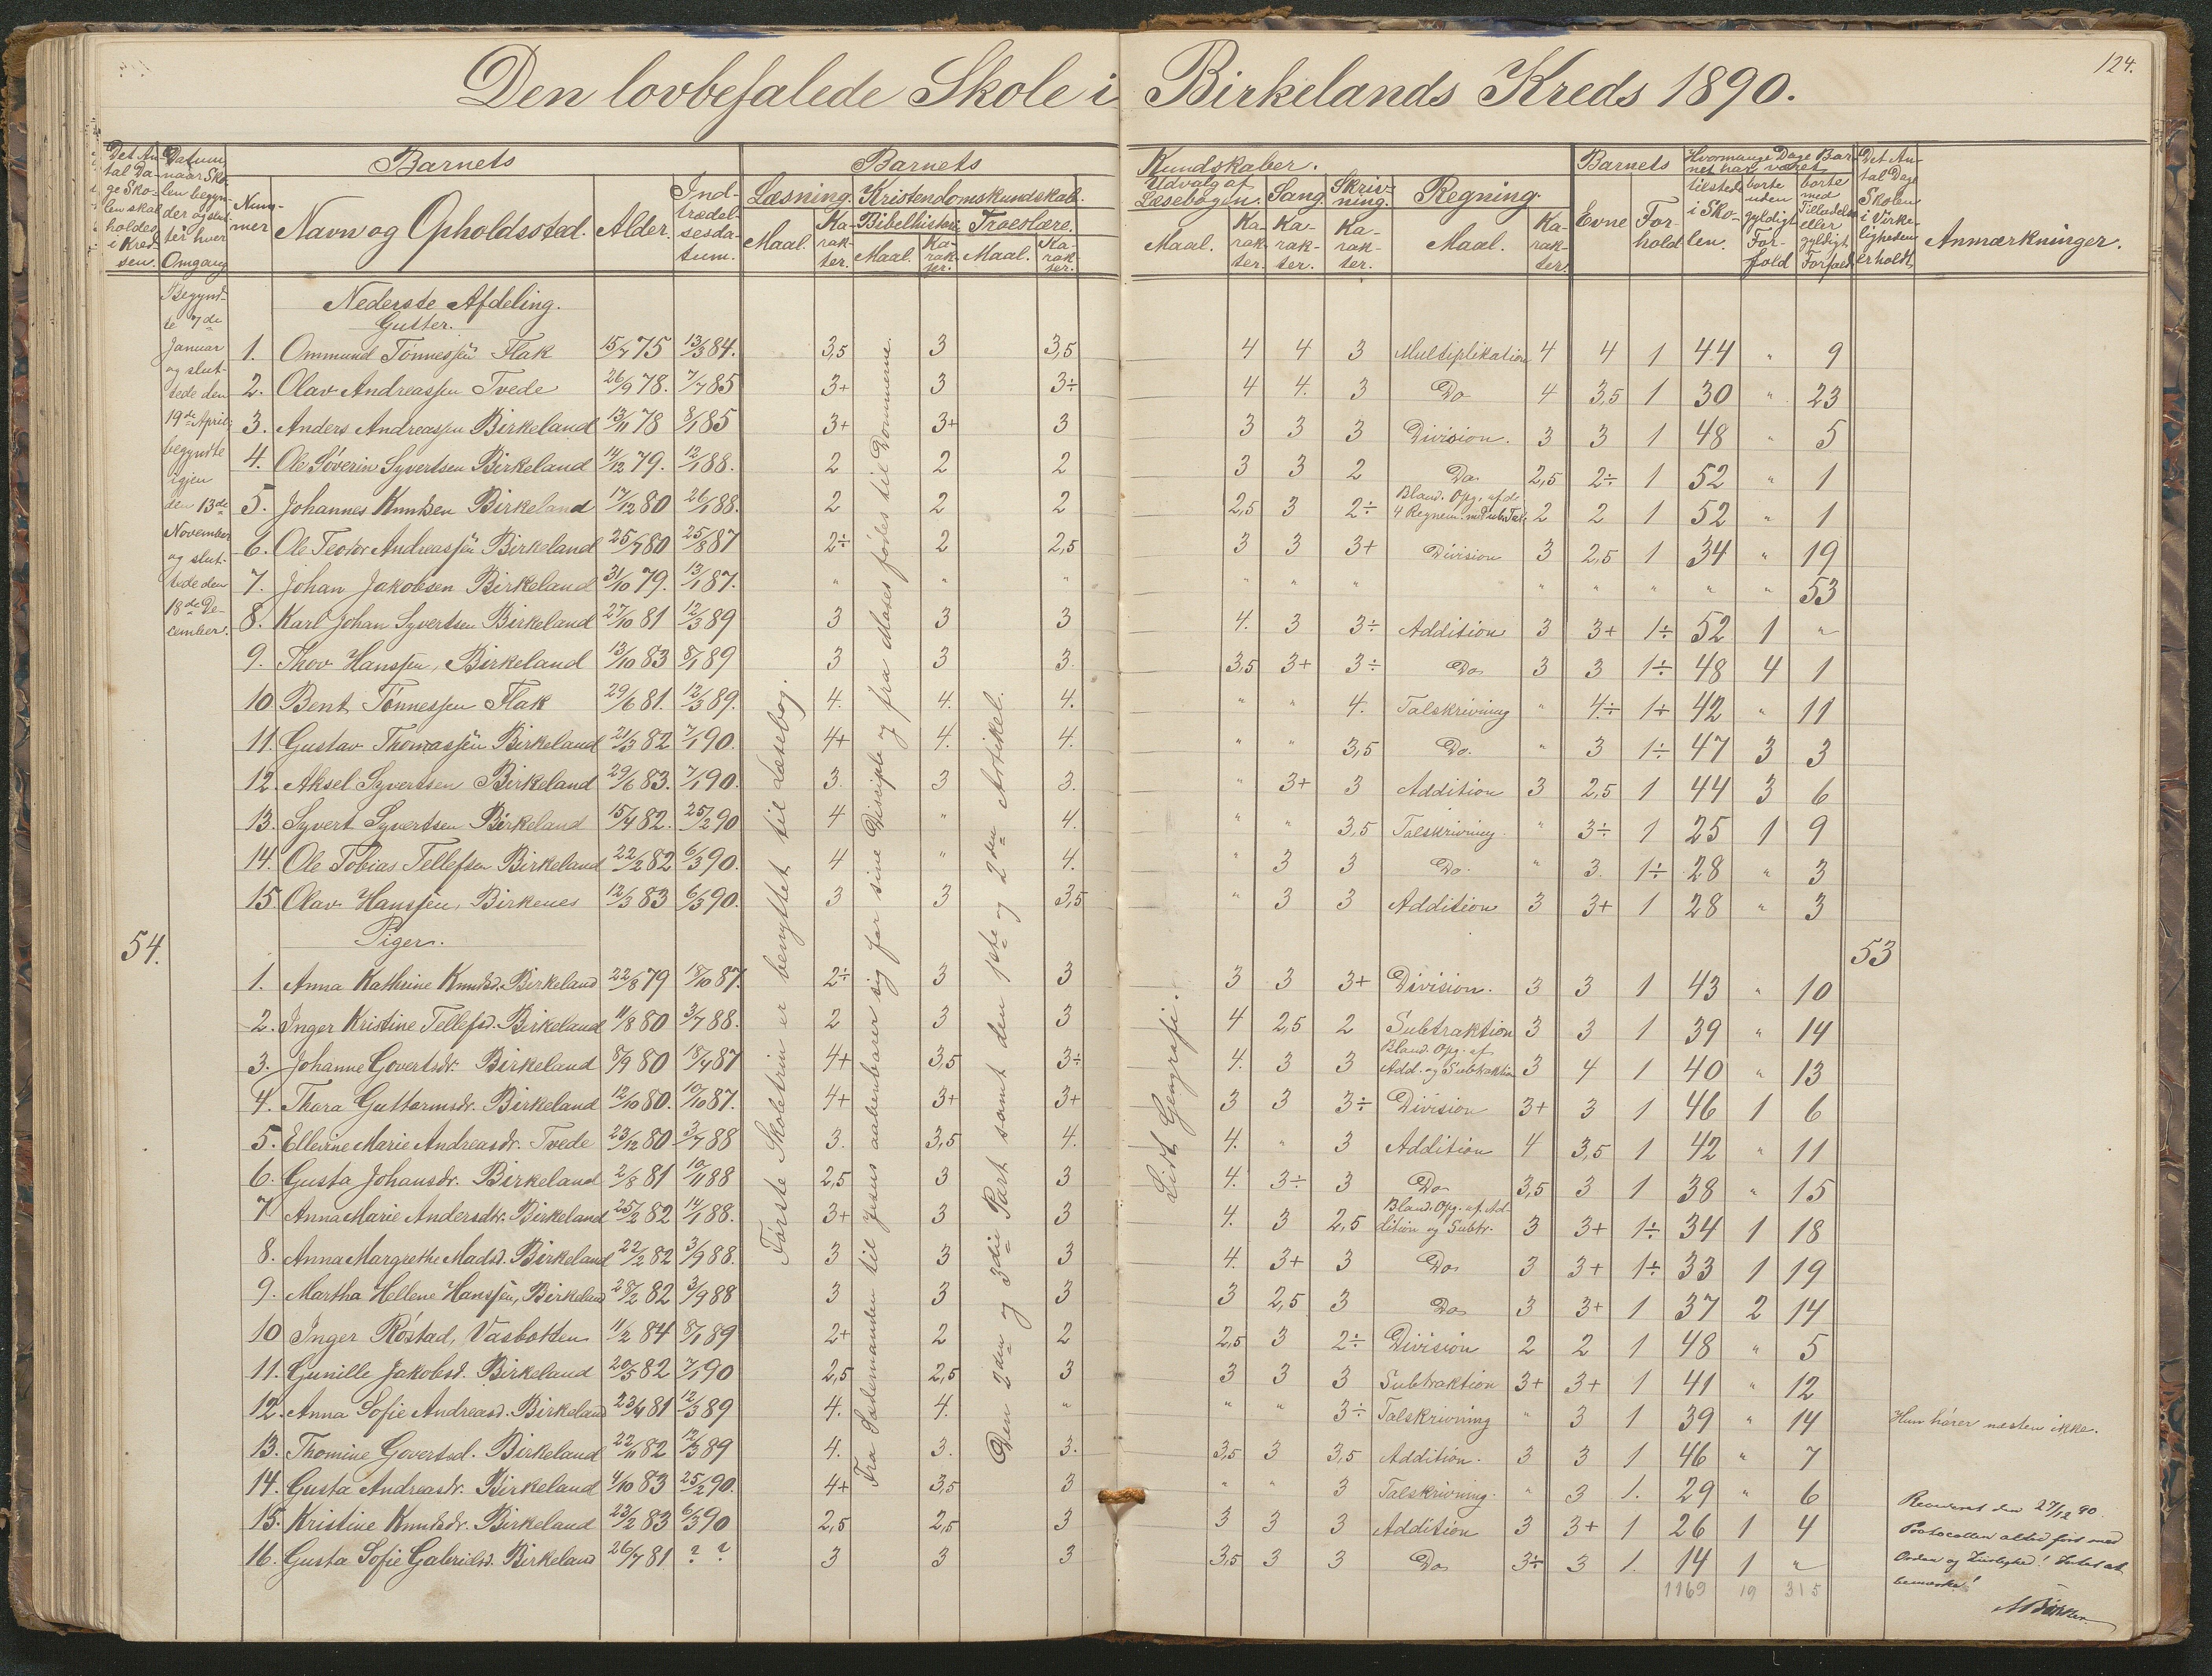 Den lovbefalede Skole i Birkelands Kreds 1890.
124.
Det Antal Dage Skolen skal holdes i Kredsen. | Datum, naar Skolen begynder og slutter hver Omgang | Barnets | Nummer | Navn og Opholdssted. | Alder. | Indtrædelsesdatum. | Barnets Kundskaber. | Læsning. Maal. Karakter. | Kristendomskundskab. | Bibelhistorie Maal. Karakter. | Troeslære. Maal. Karakter. | Udvalg af Læsebogen. Maal. Karakter. | Sang. Karakter. | Skrivning. Karakter. | Regning. Maal. Karakter. | Barnets Evne Forhold | Hvormange Dage Barnet har været | tilstede i Skolen. | borte uden gyldigt Forfald | borte med Tilladelse eller gyldigt Forfald | Det Antal Dage Skolen i Virkeligheden er holdt. | Anmærkninger.
Begyndte 7de Januar og sluttede den 19de April; begyndte igjen den 13de November og sluttede den 18de December.
54.
Nederste Afdeling.
Gutter.
1. Ommund Tønnessen Flak 15/7 75 13/3 84. 3,5 3 3,5 4 4 3 Multiplikation 4 4 1 44 " 9
2. Olav Andreassen Tvede 26/9 78. 7/7 85 3+ 3 3÷ 4 4. 3 Do 4 3,5 1 30 " 23
3. Anders Andreassen Birkeland 13/11 78 8/1 85 3+ 3+ 3 3 3 3 Division. 3 3 1 48 " 5
4. Ole Søverin Syvertsen Birkeland 14/12 79. 12/1 88. 2 2 2 3 3 2 Do 2,5 2÷ 1 52 " 1
5. Johannes Knudsen Birkeland 17/12 80 26/1 88. 2 2 2 2,5 3 2÷ Bland. Opg. af de 4 Regnem. med ub. Tal. 2 2 1 52 " 1
6. Ole Teodor Andreassen Birkeland 25/7 80 25/8 87 2÷ 2 2,5 3 3 3+ Division 3 2,5 1 34 " 19
7. Johan Jakobsen Birkeland 31/10 79. 13/1 87. " " " " " " " " " " " 53
8. Karl Johan Syvertsen Birkeland 27/10 81 12/3 89 3 3 3 4. 3 3÷ Addition 3 3+ 1÷ 52 1 "
9. Thov Hanssen, Birkeland 13/10 83 8/1 89 3 3 3. 3,5 3+ 3÷ Do 3 3 1÷ 48 4 1
10. Bent Tønnessen Flak 29/6 81. 12/3 89. 4. 4. 4. " " 4. Talskrivning " 4÷ 1÷ 42 " 11
11. Gustav Thomassen Birkeland 21/3 82 7/1 90. 4+ 4. 4. " " 3,5 Do. " 3 1÷ 47 3 3
12. Aksel Syvertsen Birkeland 29/6 83. 7/1 90. 3. 3 3. " 3+ 3 Addition 3 2,5 1 44 3 6
13. Syvert Syvertsen Birkeland 15/4 82. 25/2 90 4 " 4. " " 3,5 Talskrivning. " 3÷ 1 25 1 9
14. Ole Tobias Tellefsen Birkeland 22/2 82 6/3 90. 4 " 4. " 3 3 Do. " 3. 1÷ 28 " 3
15. Olav Hanssen, Birkenes 12/3 83 6/3 90. 3 3 3,5 " 3 3 Addition 3 3+ 1 28 " 3
Piger.
53
1. Anna Kathrine Knudsd. Birkeland 22/8 79 18/10 87. 2÷ 3 3 3 3 3+ Division. 3 3 1 43 " 10
2. Inger Kristine Tellefsd. Birkeland 11/8 80 3/7 88. 2 3 3 4 2,5 2 Subtraktion 3 3 1 39 " 14
3. Johanne Govertsdr. Birkeland 8/9 80 18/7 87 4+ 3,5 3÷ 4. 3 3 Bland. Opg. af Add. og Subtraktion 3 4 1 40 " 13
4. Thara Guttormsdr. Birkeland 12/10 80. 10/10 87. 4+ 3+ 3+ 3 3 3÷ Division 3+ 3 1 46 1 6
5. Ellerine Marie Andreasdr. Tvede 23/12 80 3/7 88 3. 3,5 4. 4. " 3 Addition 4 3,5 1 42 " 11
6. Gusta Johansdr. Birkeland 2/8 81 10/11 88 2,5 3 3 4. 3÷ 3 Do 3,5 3 1 38 " 15
7. Anna Marie Andersdtr. Birkeland 25/2 82 14/1 88. 3+ 3 3 4. 3 2,5 Bland. Opg. af Addition og Subtr. 3 3+ 1÷ 34 1 18
8. Anna Margrethe Madsd. Birkeland 22/2 82 3/9 88. 3 3 3 4. 3+ 3 Do 3 3+ 1÷ 33 1 19
9. Martha Hellene Hanssen, Birkeland 28/2 82 3/9 88 3 3 3 3 2,5 3 Do 3 3+ 1 37 2 14
10 Inger Røstad, Vasbotten 11/2 84 8/1 89 2+ 2 2 2,5 3 2÷ Division 2 2 1 48 " 5
11. Gunille Jakobsd. Birkeland 20/5 82 7/1 90 2,5 2,5 3 3 3 3 Subtraktion 3+ 3+ 1 41 " 12
12. Anna Sofie Andreasd. Birkeland 23/4 81 12/3 89 4. 4. " " " 3÷ Talskrivning " 3 1 39 " 14 Hun hører næsten ikke.
13. Thomine Govertsd. Birkeland 22/11 82 12/3 89 4. 3. 3. 3,5 3 3,5 Addition. 3 3 1 46 " 7
14. Gusta Andreasdr. Birkeland 4/10 83 25/2 90. 4+ 3,5 3 " " 3 Talskrivning. " 3 1. 29 " 6
15. Kristine Knudsdr. Birkeland 23/2 83 6/3 90 2,5 2,5 3 3 3 3 Addition 3 3+ 1 26 1 4
16. Gusta Sofie Gabrielsd. Birkeland 26/7 81 ? ? 3 3 3 3,5 3 3 Do 3÷ 3 1. 14 1 "
1169 19 315
Første Skoletrin er benyttet til Læsebog.
Fra Sædemanden til Jesus aabenbarer sig for sine Disciple og fra Moses fødes til Dommerne.
Den 2den og 3die Part samt den 1ste og 2den Artikel.
Lidt Geografi.
Revideret den 27/12 90.
Protocollen altid ført med
Orden og Zirlighed! Intet at
bemærke!